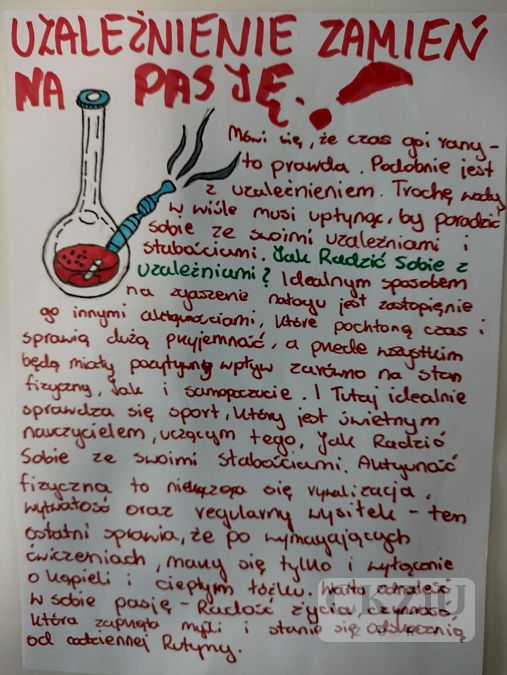 UZALEŻNIENIE ZAMIEŃ
NA PASJĘ!
Mówi się, że czas goi rany -
to prawda. Podobnie jest
z uzależnieniem. Trochę wody
w wiśle musi upłynąć, by poradzić
sobie ze swoimi uzależniami i
słabościami. Jak Radzić Sobie z
uzależniami? Idealnym sposobem
na zgaszenie nałogu jest zastąpienie
go innymi aktywnościami, które pochłoną czas i
sprawią dużą przyjemność, a przede wszystkim
będą miały pozytywny wpływ zarówno na stan
fizyczny, jak i samopoczucie. I Tutaj idealnie
sprawdza się sport, który jest świetnym
nauczycielem, uczącym tego, jak Radzić
Sobie ze swoimi słabościami. Aktywność
fizyczna to niekończąca się rywalizacja,
wytrwałość oraz regularny wysiłek - ten
ostatni sprawia, że po wymagających
ćwiczeniach, marzy się tylko i wyłącznie
o kąpieli i ciepłym łóżku. Warto odnaleźć
w sobie pasję - Radość życia, czynność
która zaprząta myśli i stanie się odskocznią
od codziennej Rutyny.
CKZIU